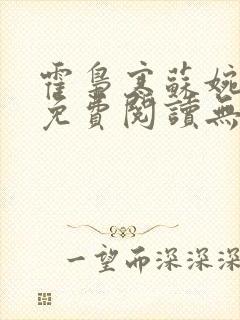 霍梟寒蘇婉
免費閱讀無
一望而深深深